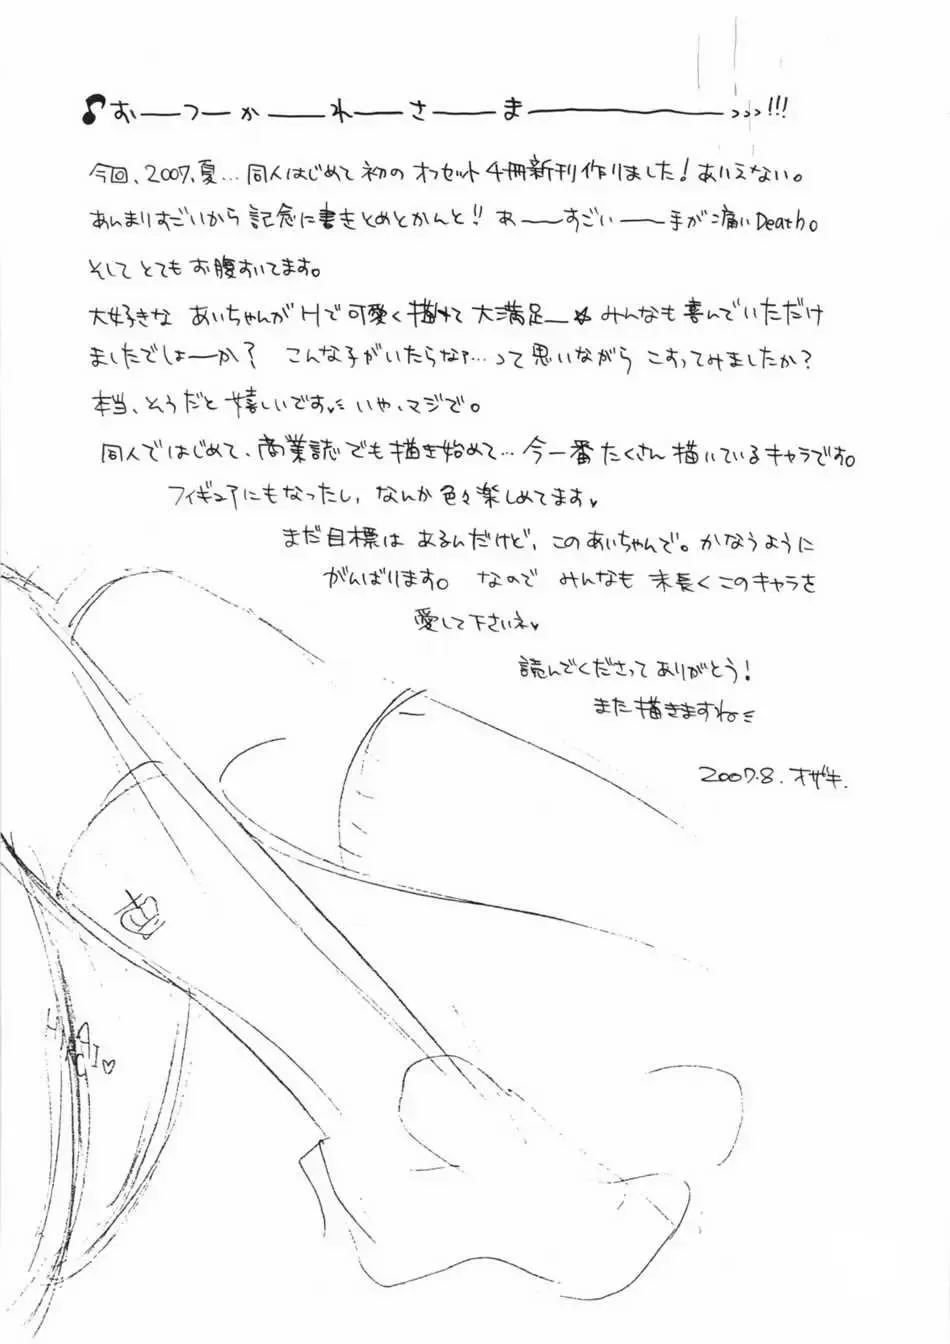 ♪おーーつーーかーーれーーさーーまーーーーーー>>>!!!
今回、2007、夏…同人はじめて初のオフセット4冊新刊作りました!ありえない。
あんまりすごいから記念に書きとめとかんと!! あーーすごいーー手が痛いDeath。
そしてとてもお腹すいてます。
大好きな あいちゃんがHで可愛く描けて大満足ー☆みんなも喜んでいただけ
ましたでしょーーか? こんな子がいたらなァ…って思いながら こすってみましたか?
本当、そうだと嬉しいです いや、マジで。
同人ではじめて、商業誌でも描き始めて…今一番たくさん描いているキャラです。
フィギュアにもなったし、なんか色々楽しめてます♥
まだ目標はあるんだけど、このあいちゃんで。かなうように
がんばります。 なので みんなも 末長くこのキャラを
愛して下さいネ♥
読んでくださってありがとう!
また描きますね
2007.8. オザキ.
AI♡